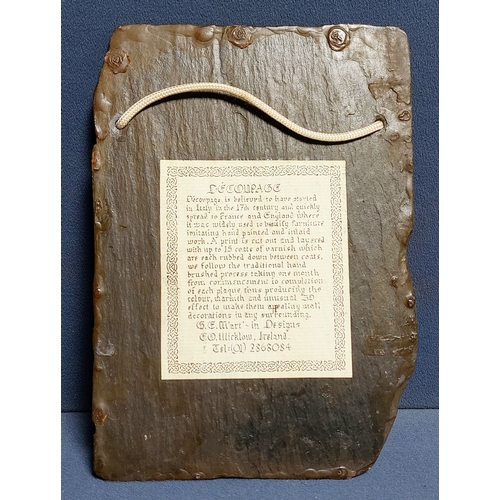 DÉCOUPAGE
Découpage is believed to have started
in Italy in the 17th century and quickly
spread to France and England where
it was widely used to beautify furniture
imitating hand painted and inlaid
work. A print is cut out and layered
with up to 15 coats of varnish which
are each rubbed down between coats,
we follow the traditional hand
brushed process taking one month
from commencement to completion
of each plaque, thus producing the
colour, warmth and unusual 3D
effect to make them appealing wall
decorations in any surrounding.
in Designs
CO. Wicklow, Ireland.
Tel: (01) 2868084